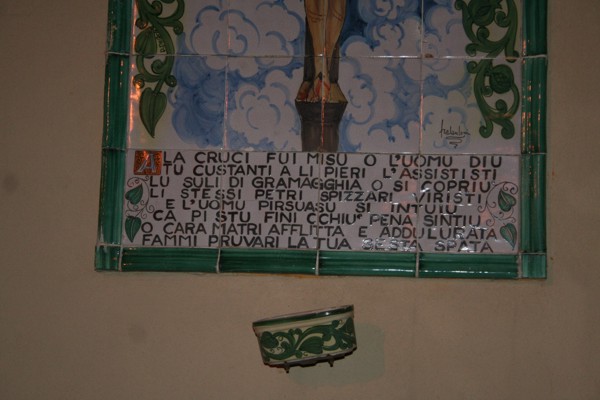 A LA CRUCI FUI MISU O L'UOMU DIU
TU CUSTANTI A LI PIERI L'ASSISTISTI
LU SULI DI GRAMAGGHIA O SI COPRIU
LI STESSI PETRI SPIZZARI VIRISTI
E L'UOMU PIRSUASU SI INTUIU
CA PI STU FINI CCHIU' PENA SINTIU
O CARA MATRI AFFLITTA E ADDULURATA
FAMMI PRUVARI LA TUA SESTA SPATA